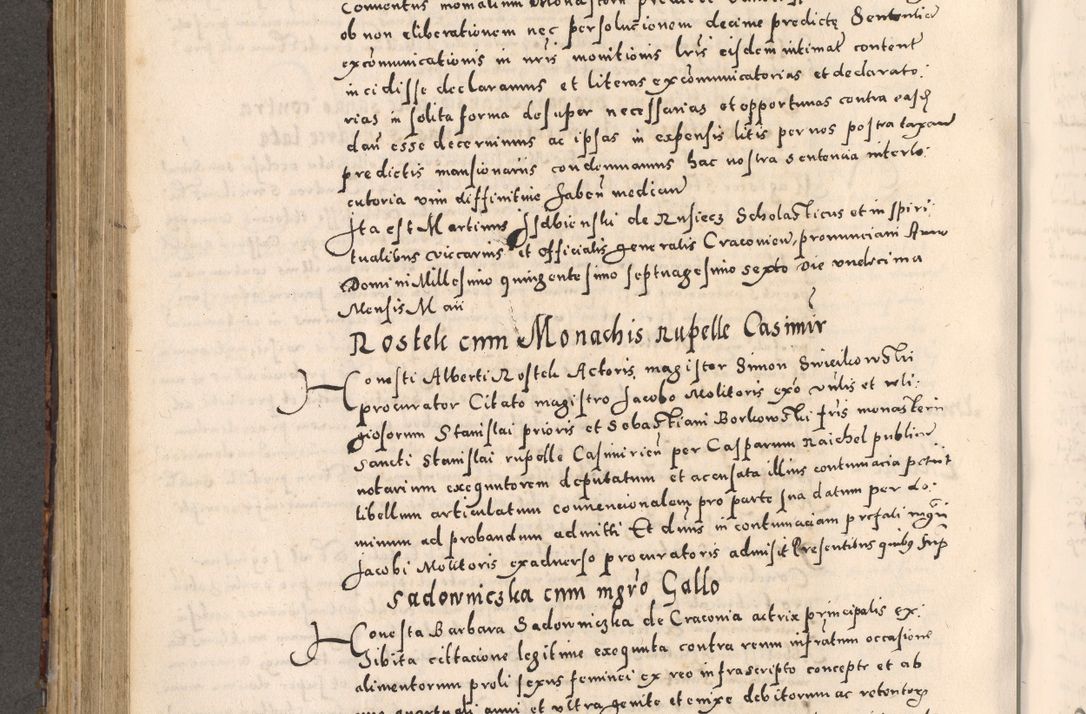 ob non eliberationem nec persolucionem decime predictę Sententia
excōmunicationis in nr̄is monitionis lr̄is eisdem intimat content
incidisse declaramus et literas excōmunicatorias et declarato:
rias in solita forma desuper necessarias et opportunas contra
dan̄ esse decernimus ac ipsas in expensis litis per nos postra taxan
predictis mansionariis condemnamus hac nostra sentencia interlo:
cutoria vim diffinitiue haben̄ median
Ita est Martinus Isdbienski de Rusiecz Scholasticus et in spiri
tualibus viccarius et officialis generalis Cracouien̄, pronunciaui Anno
Domini Millesimo quingentesimo septuagesimo sexto die vndecima
Mensis Maii
Rostek cum Monachis rupelle Casimir
Honesti Alberti Rostek Actoris, magister Simon Swieikowski
procurator Citato magistro Jacobo Molitoris exō vn̄lis et reli:
giosorum Stanislai prioris et Sebastiani Borkowski fr̄is monasterii
Sancti Stanislai rupelle Casimirien̄ per Casparum Raichel publicū
notarium exequutorem deputatum et accusata illius contumatia petiit
libellum articulatum conuencionalem pro parte sua datum per do:
minum ad probandum admitti Et dn̄us in contumaciam prefati mgr̄i
Jacobi Molitoris exaduerso procuratoris admisit Presentibus quibꝫ sup
Sadowniczka cum mgr̄o Gallo
Honesta Barbara Sadowniczka de Cracouia actrix principalis ex:
hibita cittacione legitime exequuta contra reum infratum occasione
alimentorum proli sexus feminei ex reo infrascripto concepte et ab
anni et vltra genite et enixe debitorum ac retentorū